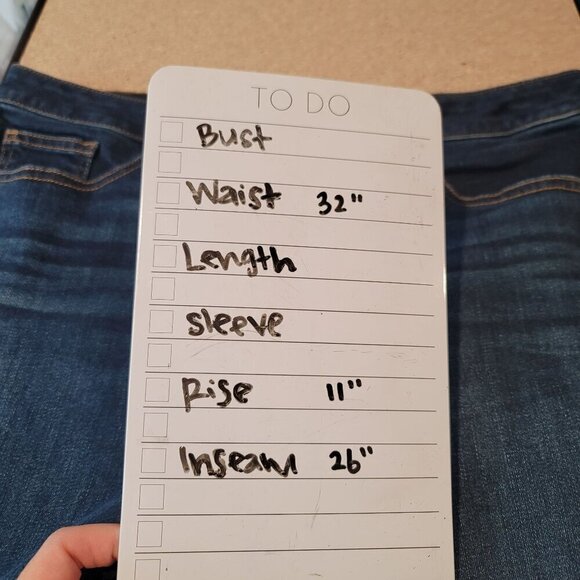 TO DO
Bust
Waist 32"
Length
sleeve
Rise 11"
Inseam 26"